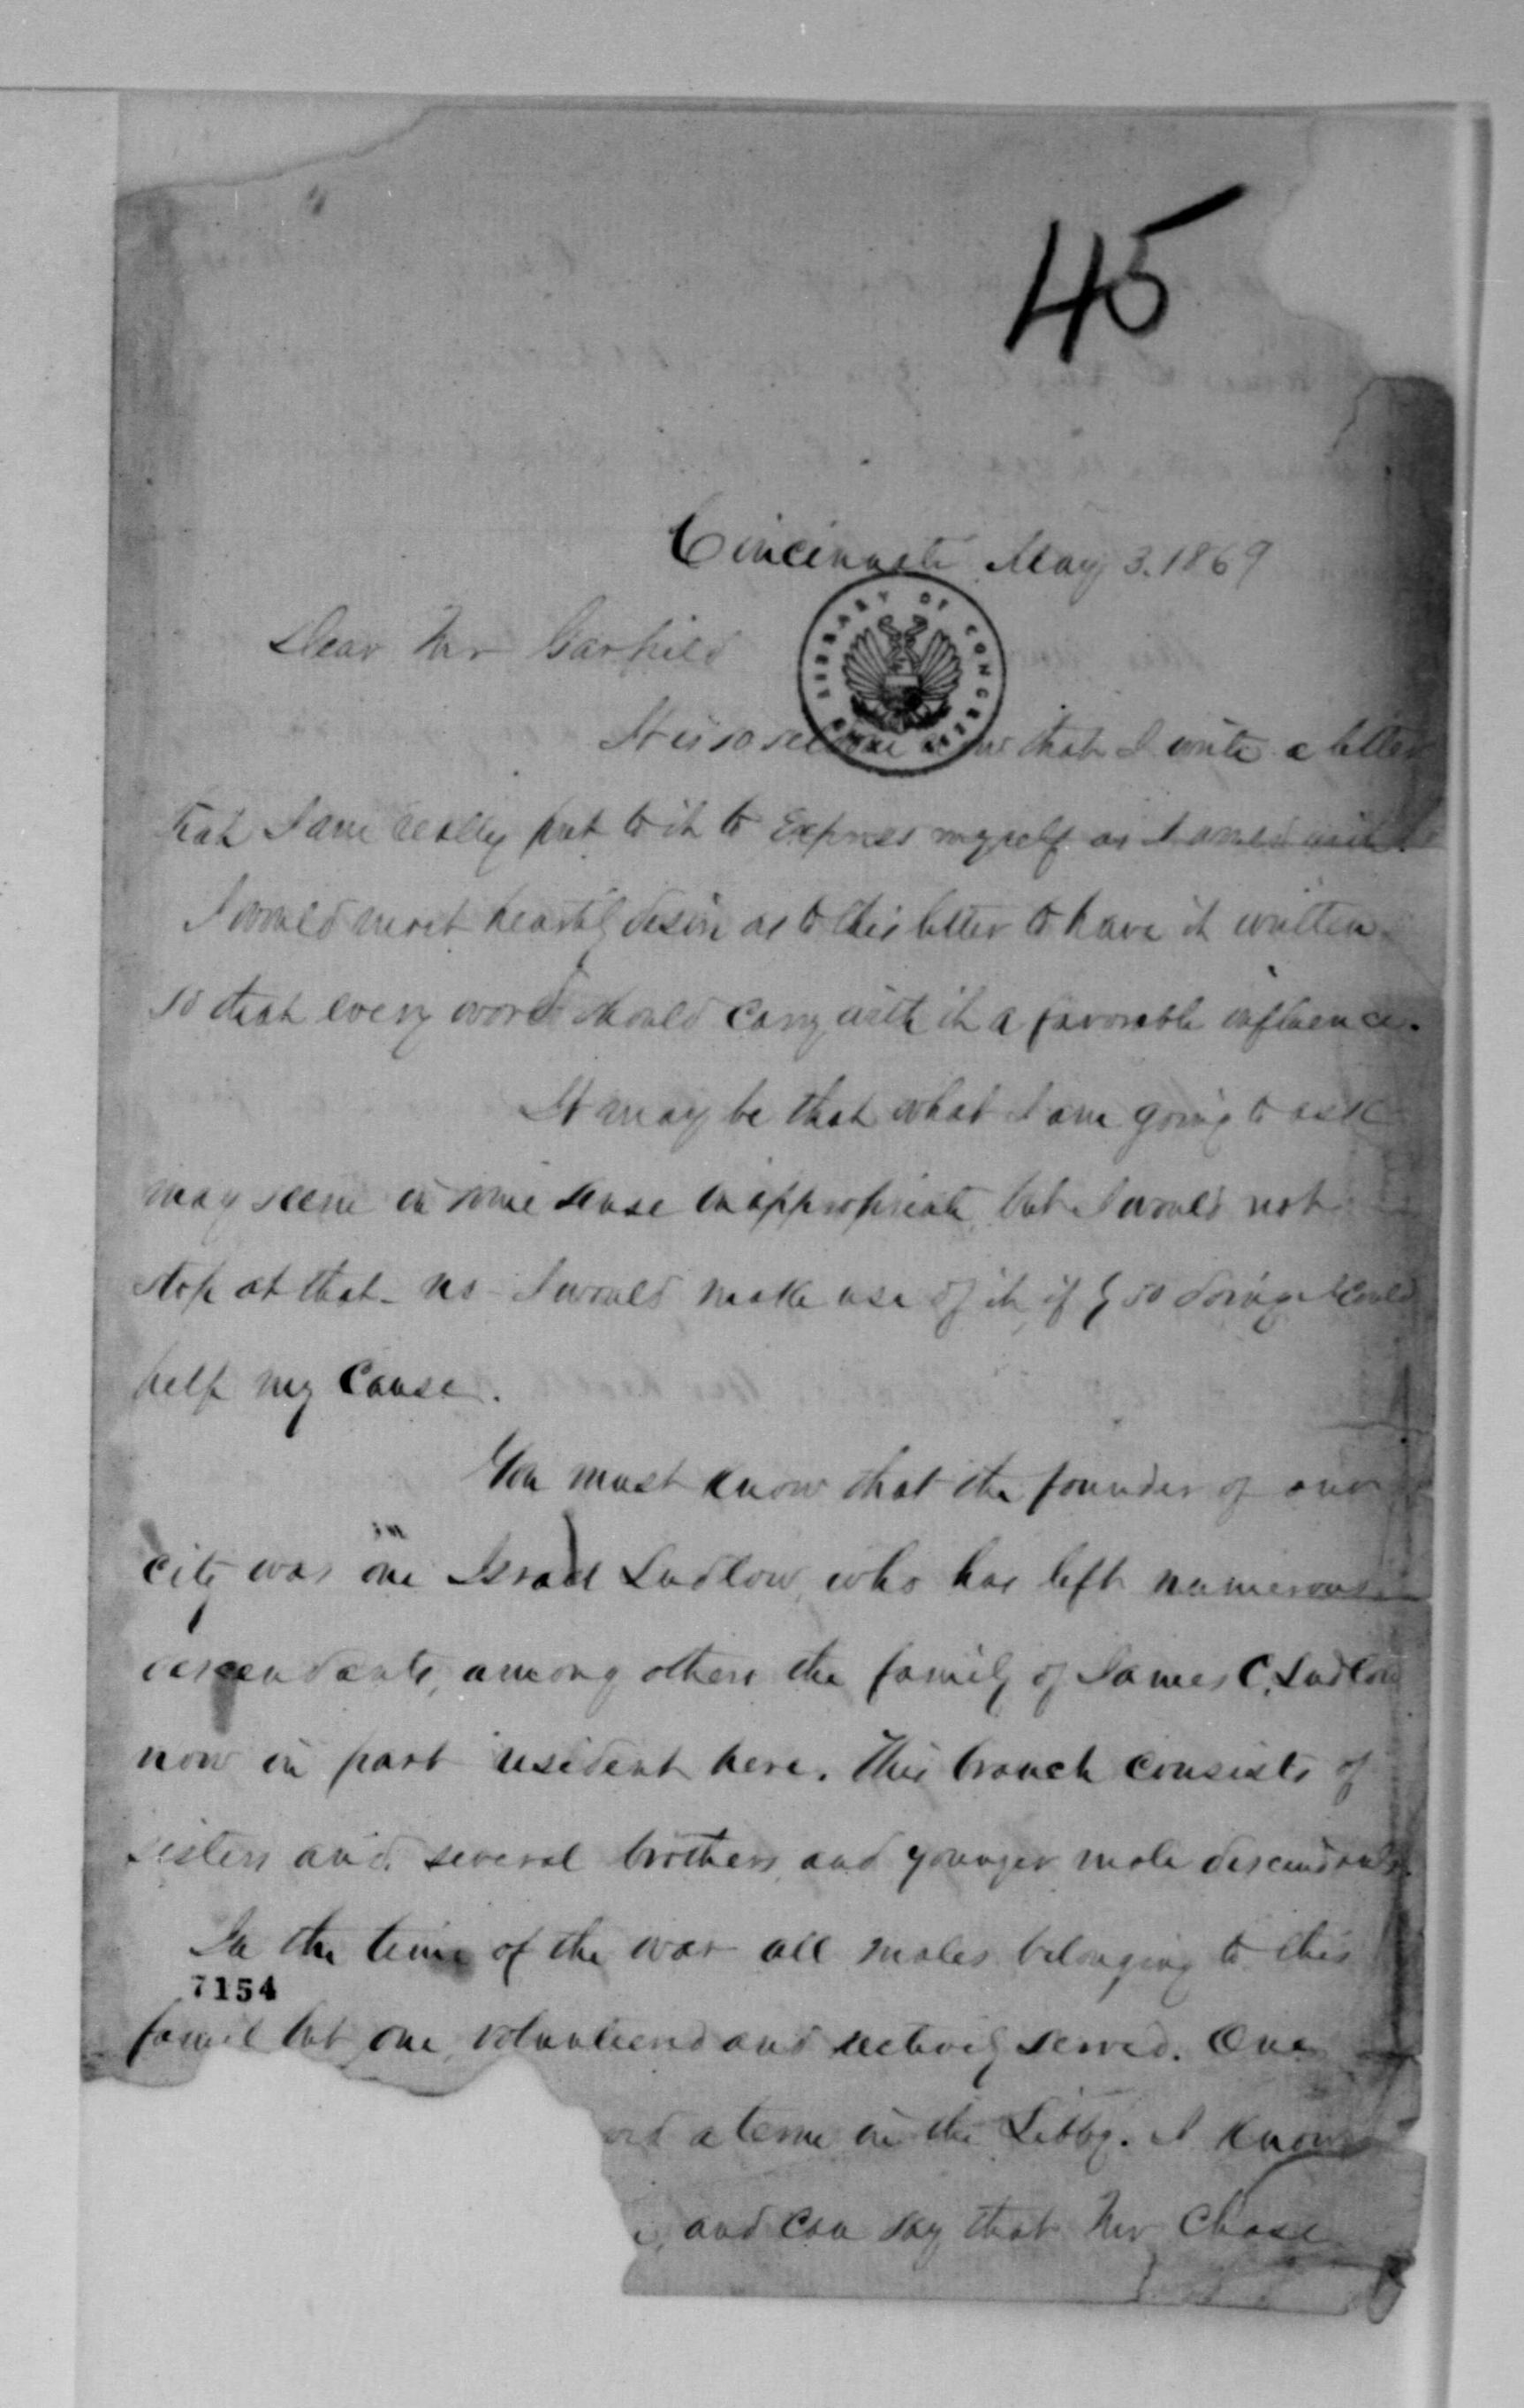 45
Cincinnati May 3. 1869
LIBRARY OF CONGRESS
Dear Mr Garfield
It is so seldom now that I write a letter
that I am really put to it to Express myself as I
I would most heartily desire as to this letter to have it written
so that every word should carry with it a favorable influence.
It may be that what I am going to ask
may seem in some sense inappropriate but I would not
stop at that - no - I would make use of it, if by so doing I could
help my Cause.
You must know that the founder of our
city was one Israel Ludlow, who has left numerous
descendants, among others the family of James C. Ludlow
now in part resident here. This branch consists of
sisters and several brothers, and younger male descendants.
In the time of the war all males belonging to this
7154
but one, volunteered and actively served. One
a term in the Libby. I know
and can say that Mr Chase